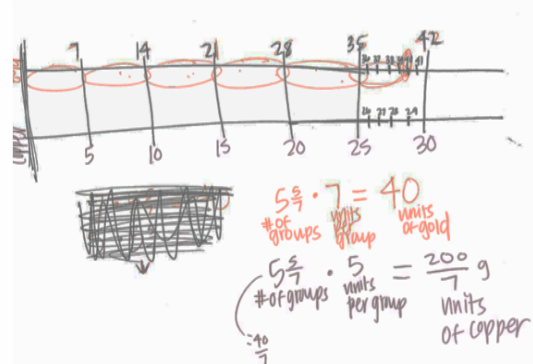 7 14 21 28 35 42
copper
5 10 15 20 25 30
5 5/7 · 7 = 40
# of groups units per group units of gold
5 5/7 · 5 = 200/7 g
# of groups units per group units of copper
40/7